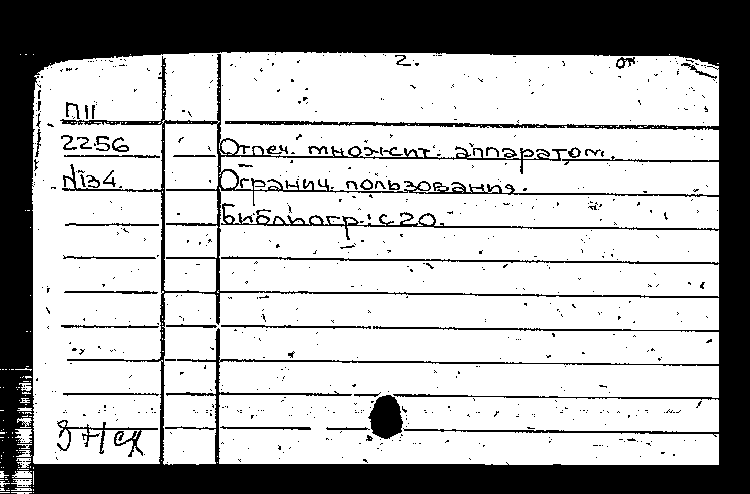 2. от
П11
2256 Отпеч. множит. аппаратом.
№134. Огранич. пользования.
Библиогр.: с 20.